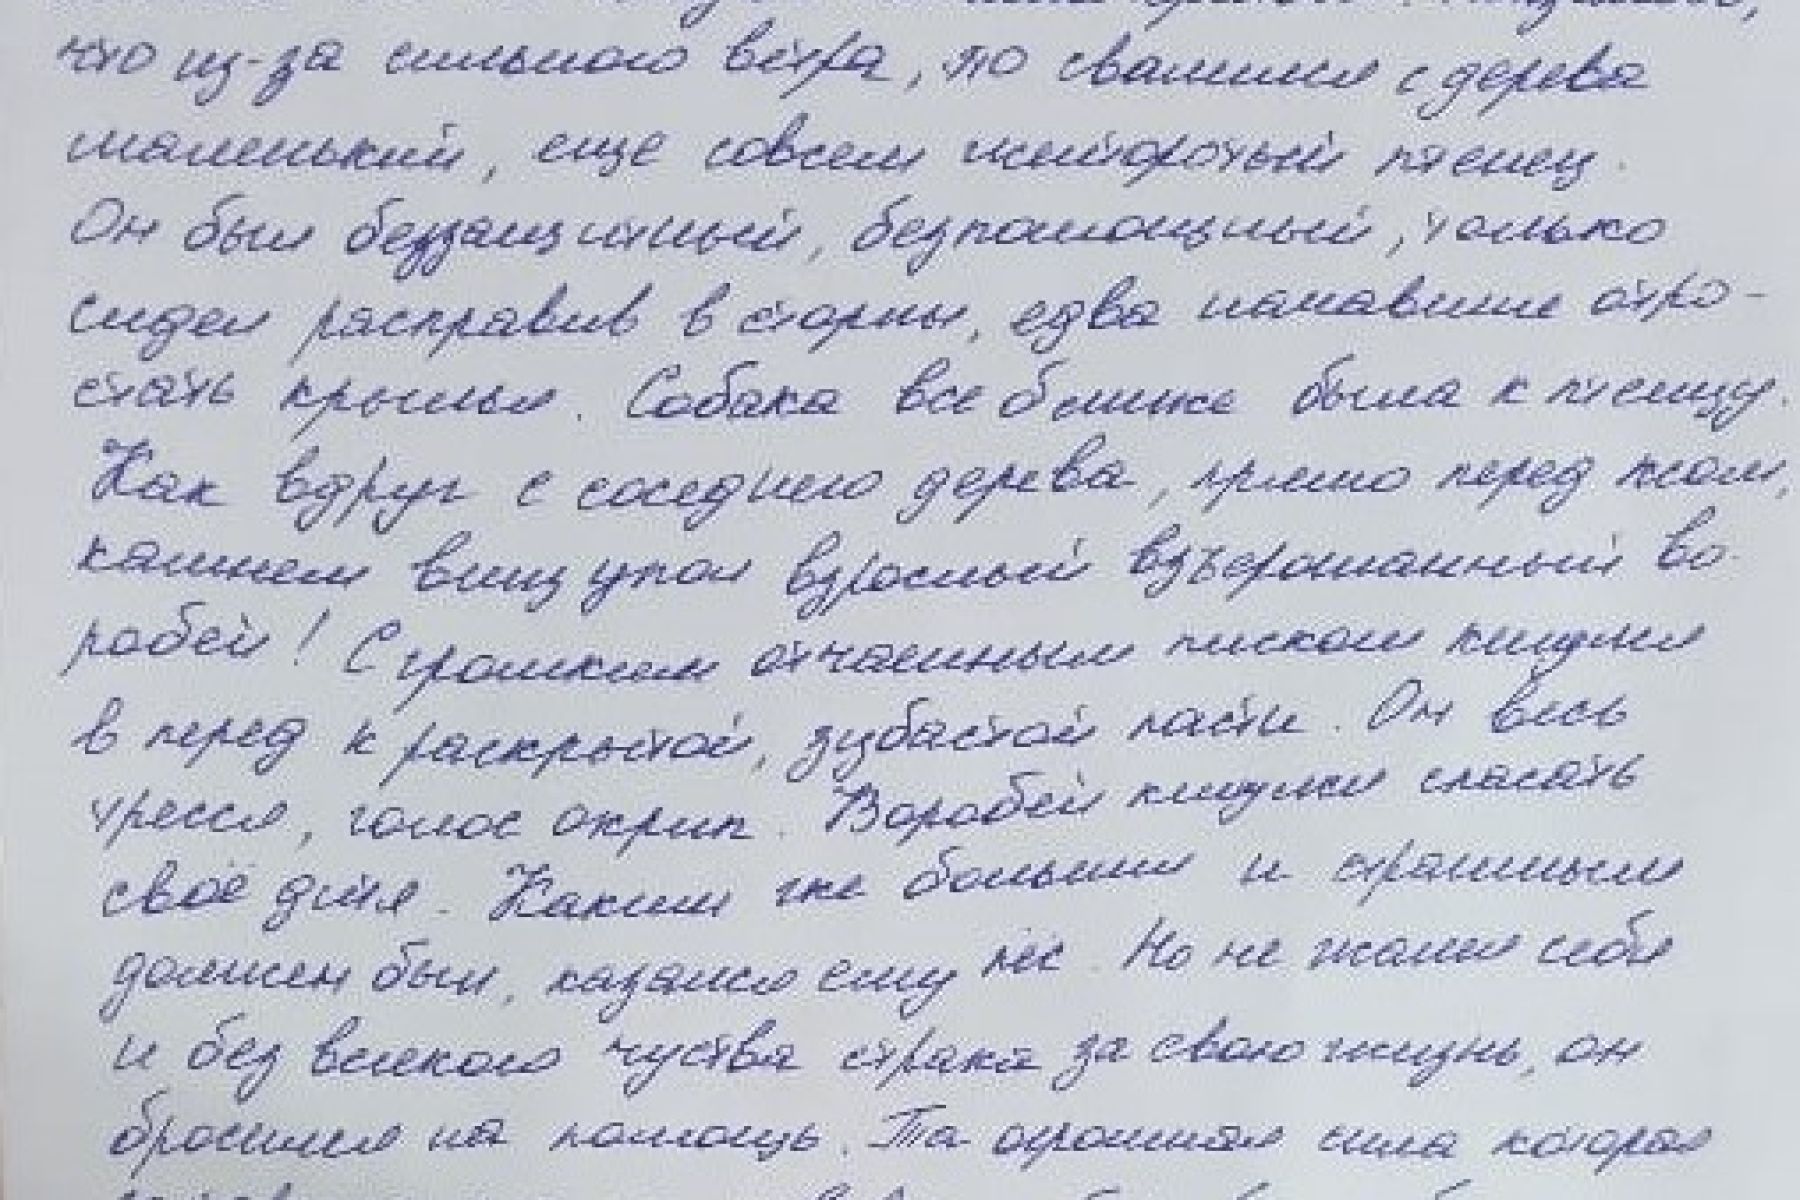 что из-за сильного ветра, то свалился с дерева
маленький, еще совсем желторотый птенец.
Он был беззащитный, безпомощный, только
сидел расправив в сторны, едва начавшие отро-
стать крылья. Собака все ближе была к птенцу.
Как вдруг с соседнего дерева, прямо перед псом,
камнем вниз упал взрослый взъерошанный во-
робей! С громким отчаенным писком кидился
в перед к раскрытой, зубастой пасти. Он весь
тресся, голос охрип. Воробей кидился спасать
своё дитя. Каким же большим и страшным
должен был, казался ему пёс. Но не жалел себя
и без всякого чуства страха за свою жизнь, он
бросился на помощь. Та огромная сила которая